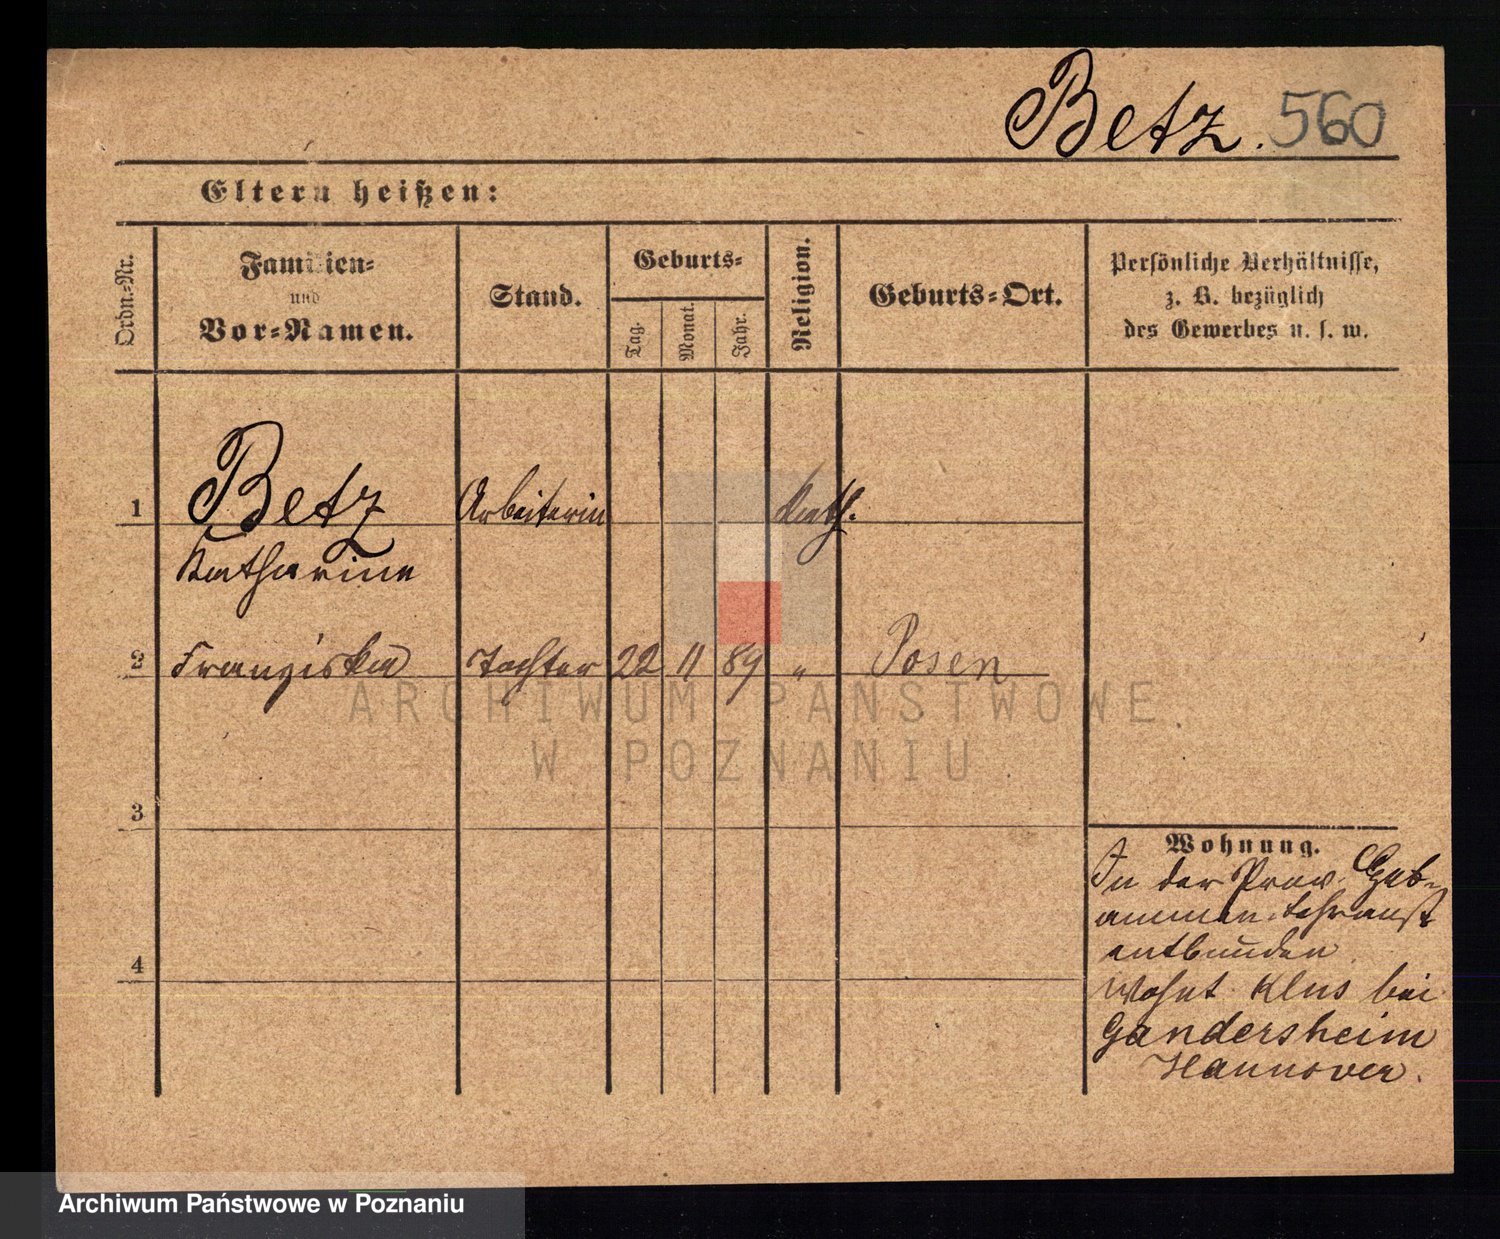 Betz. 560
Eltern heißen:
Ordn.-Nr.
Familien-
und
Vor-Namen.
Stand.
Geburts-
Tag.
Monat.
Jahr.
Religion.
Geburts-Ort.
Persönliche Verhältnisse,
z. B. bezüglich
des Gewerbes u. s. w.
1 Betz Arbeiterin kath.
Katharine
2 Franziska Tochter 22 11 89 " Posen
ARCHIWUM PAŃSTWOWE
W POZNANIU
3
4
Wohnung.
In der Prov. Heb-
ammen Lehranst
entbunden.
Wohnt Klus bei
Gandersheim
Hannover.
Archiwum Państwowe w Poznaniu